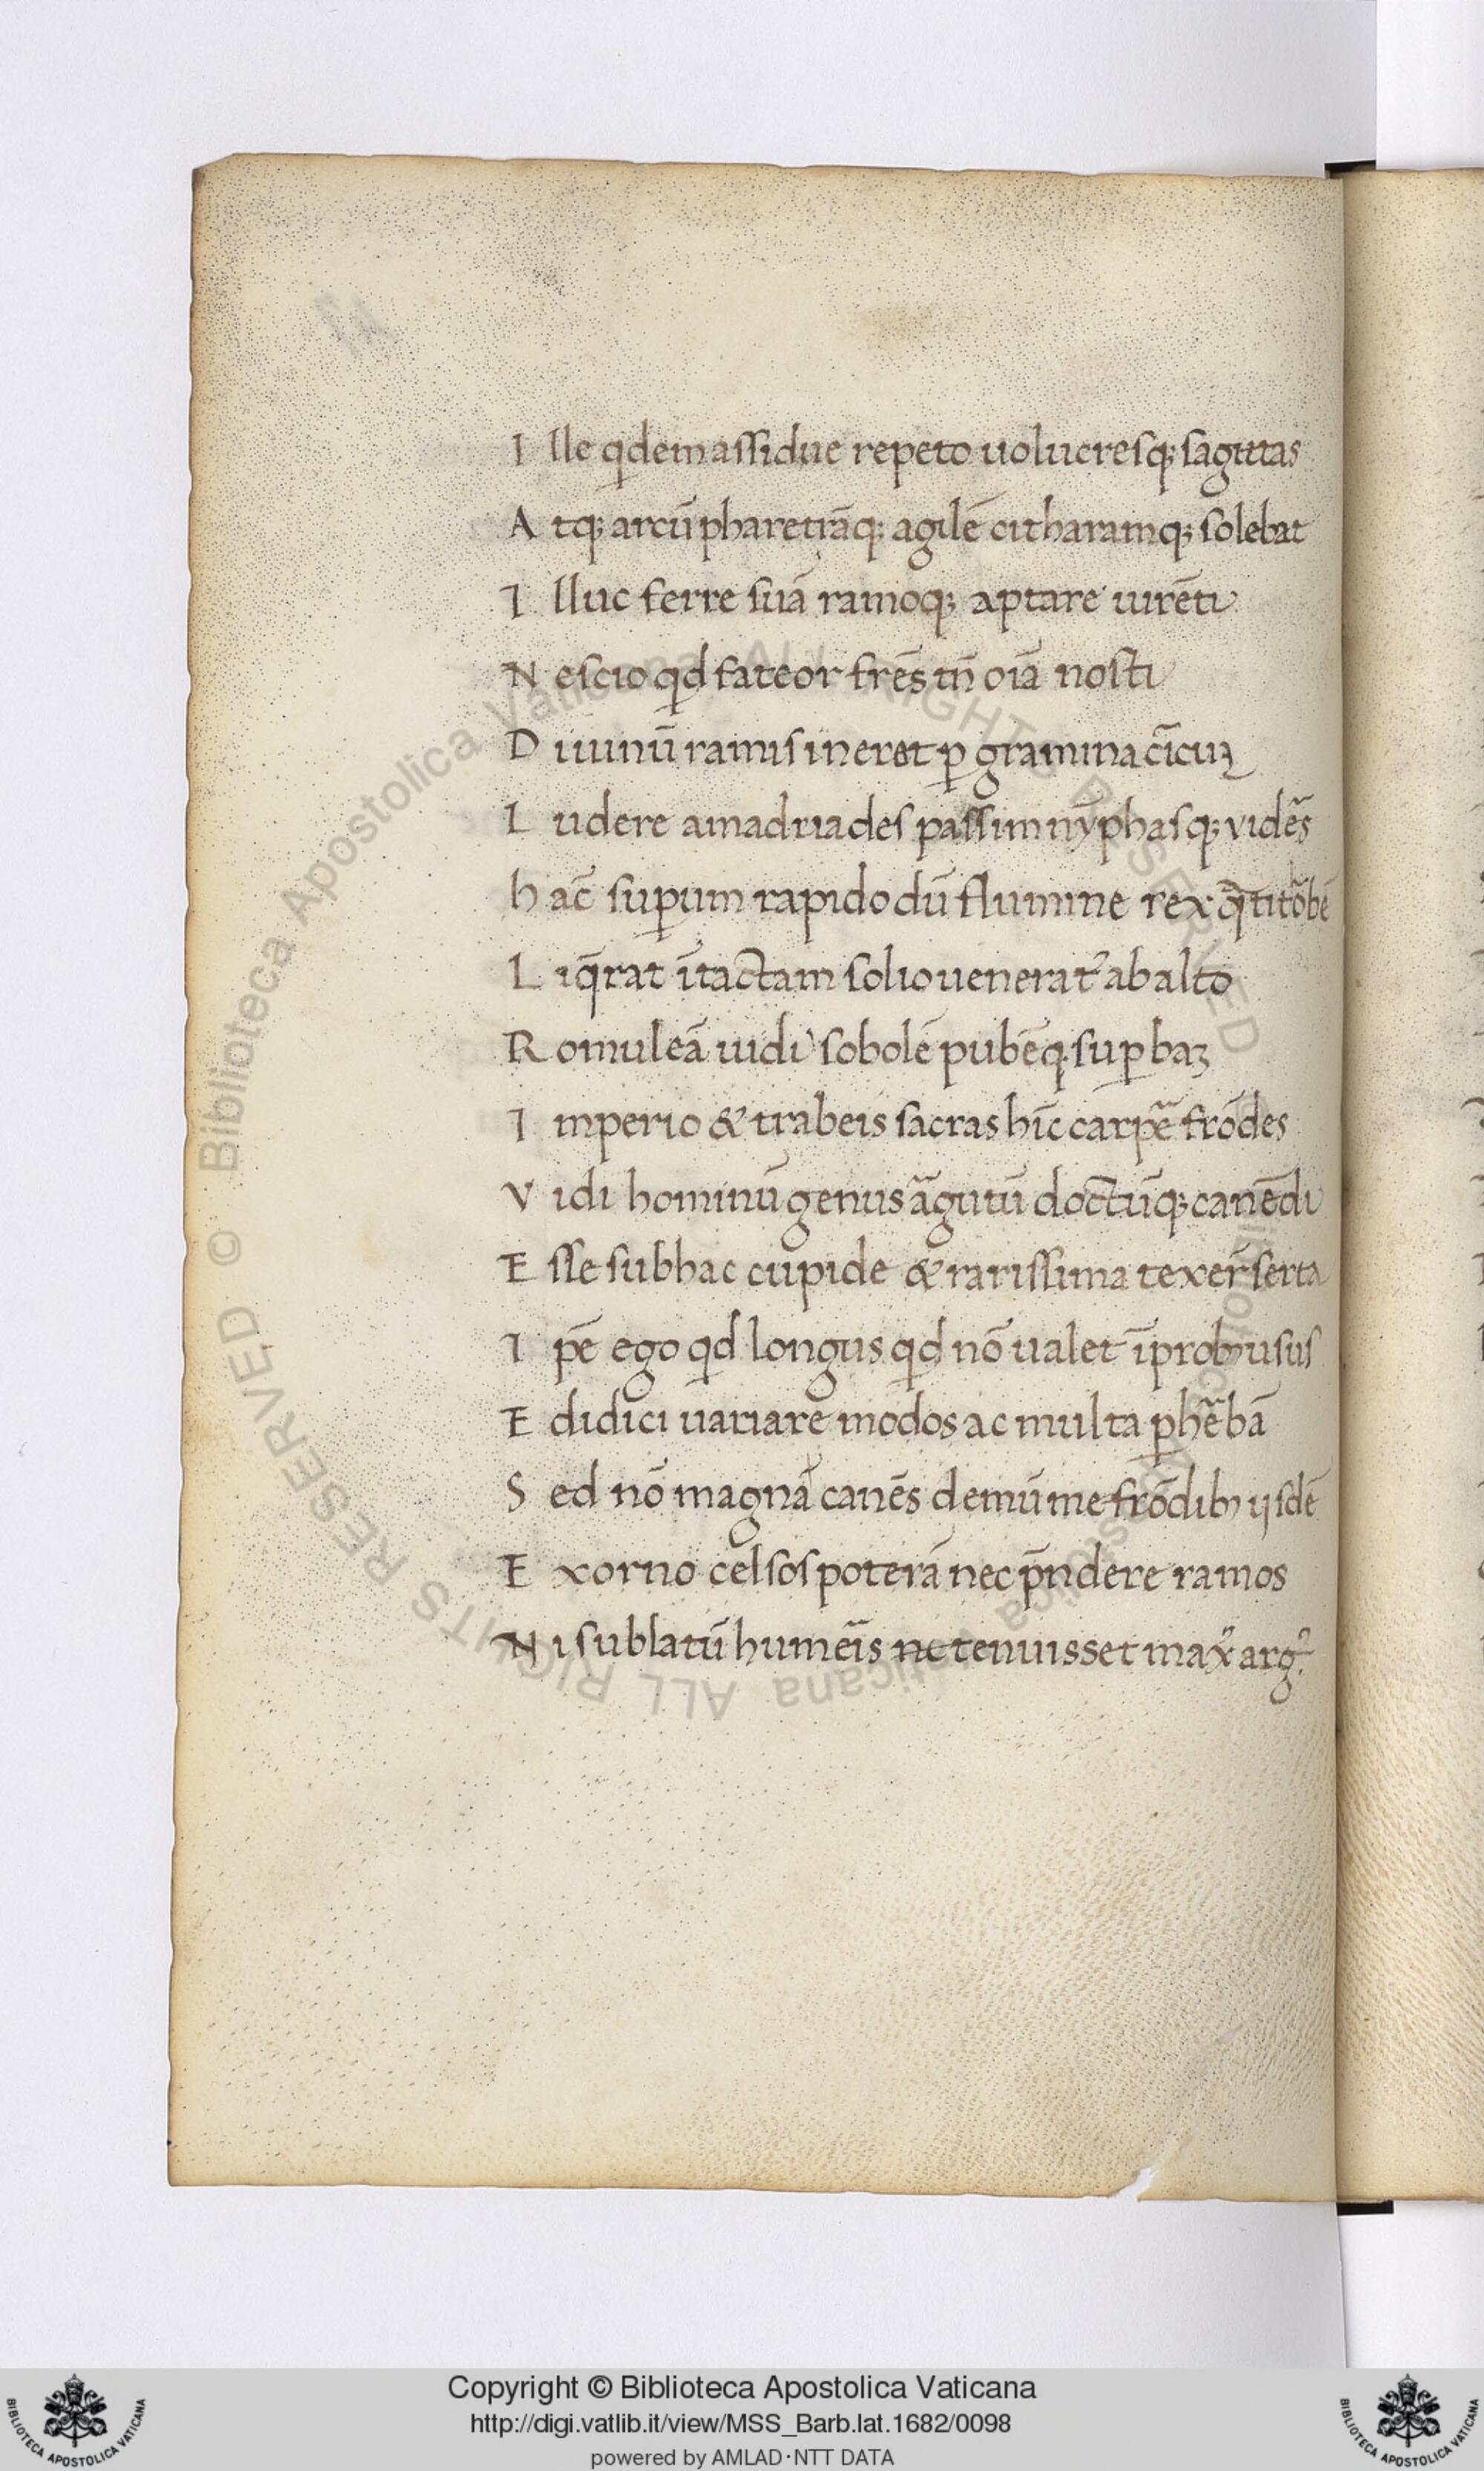 I lle qdem assidue repeto uolucresq; sagittas
A tq; arcū pharetrāq; agilē citharamq; solebat
I lluc ferre suā ramoq; aptare uirēti
N escio qd fateor frēs tn̄ oīa nosti
D iuinū ramis inerat ꝑ gramina cīcuꝫ
L udere amadriades passim nȳphasq; vidēs
h ac̄ suꝑum rapido dū flumine rex
L iq̄rat ītactam solio uenerat᾿ ab alto
R omuleā uidi sobolē pubēq. suꝑbaꝫ
I mperio & trabeis sacras hīc carpē frōdes
V idi hominū genus āguttū doctūq; canēdi
E sse sub hac cupide & rarissima texer̄ serta
I pē ego qd longus qd nō ualet īprobꝰ usus
E didici uariare modos ac multa ꝑhēbā
S ed nō magnā canēs demū me frōdibꝫ ijsdē
E xorno celsos poterā nec p̄ndere ramos
N i sublatū humeīs ne tenuisset
Copyright © Biblioteca Apostolica Vaticana
http://digi.vatlib.it/view/MSS_Barb.lat.1682/0098
powered by AMLAD·NTT DATA
© Biblioteca Apostolica Vaticana ALL RIGHTS RESERVED
BIBLIOTECA APOSTOLICA VATICANA
BIBLIOTECA APOSTOLICA VATICANA